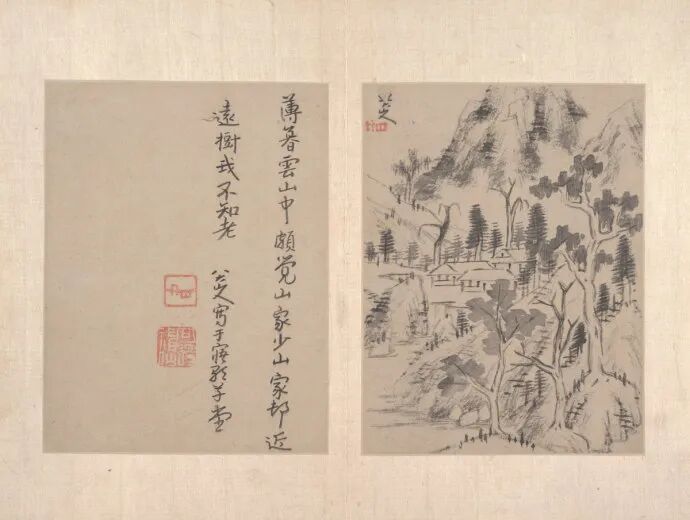 薄暮雲山中頗觉山家少山家邨近
遠樹我不知老
八大山人寫于寤歌草堂
八大山人